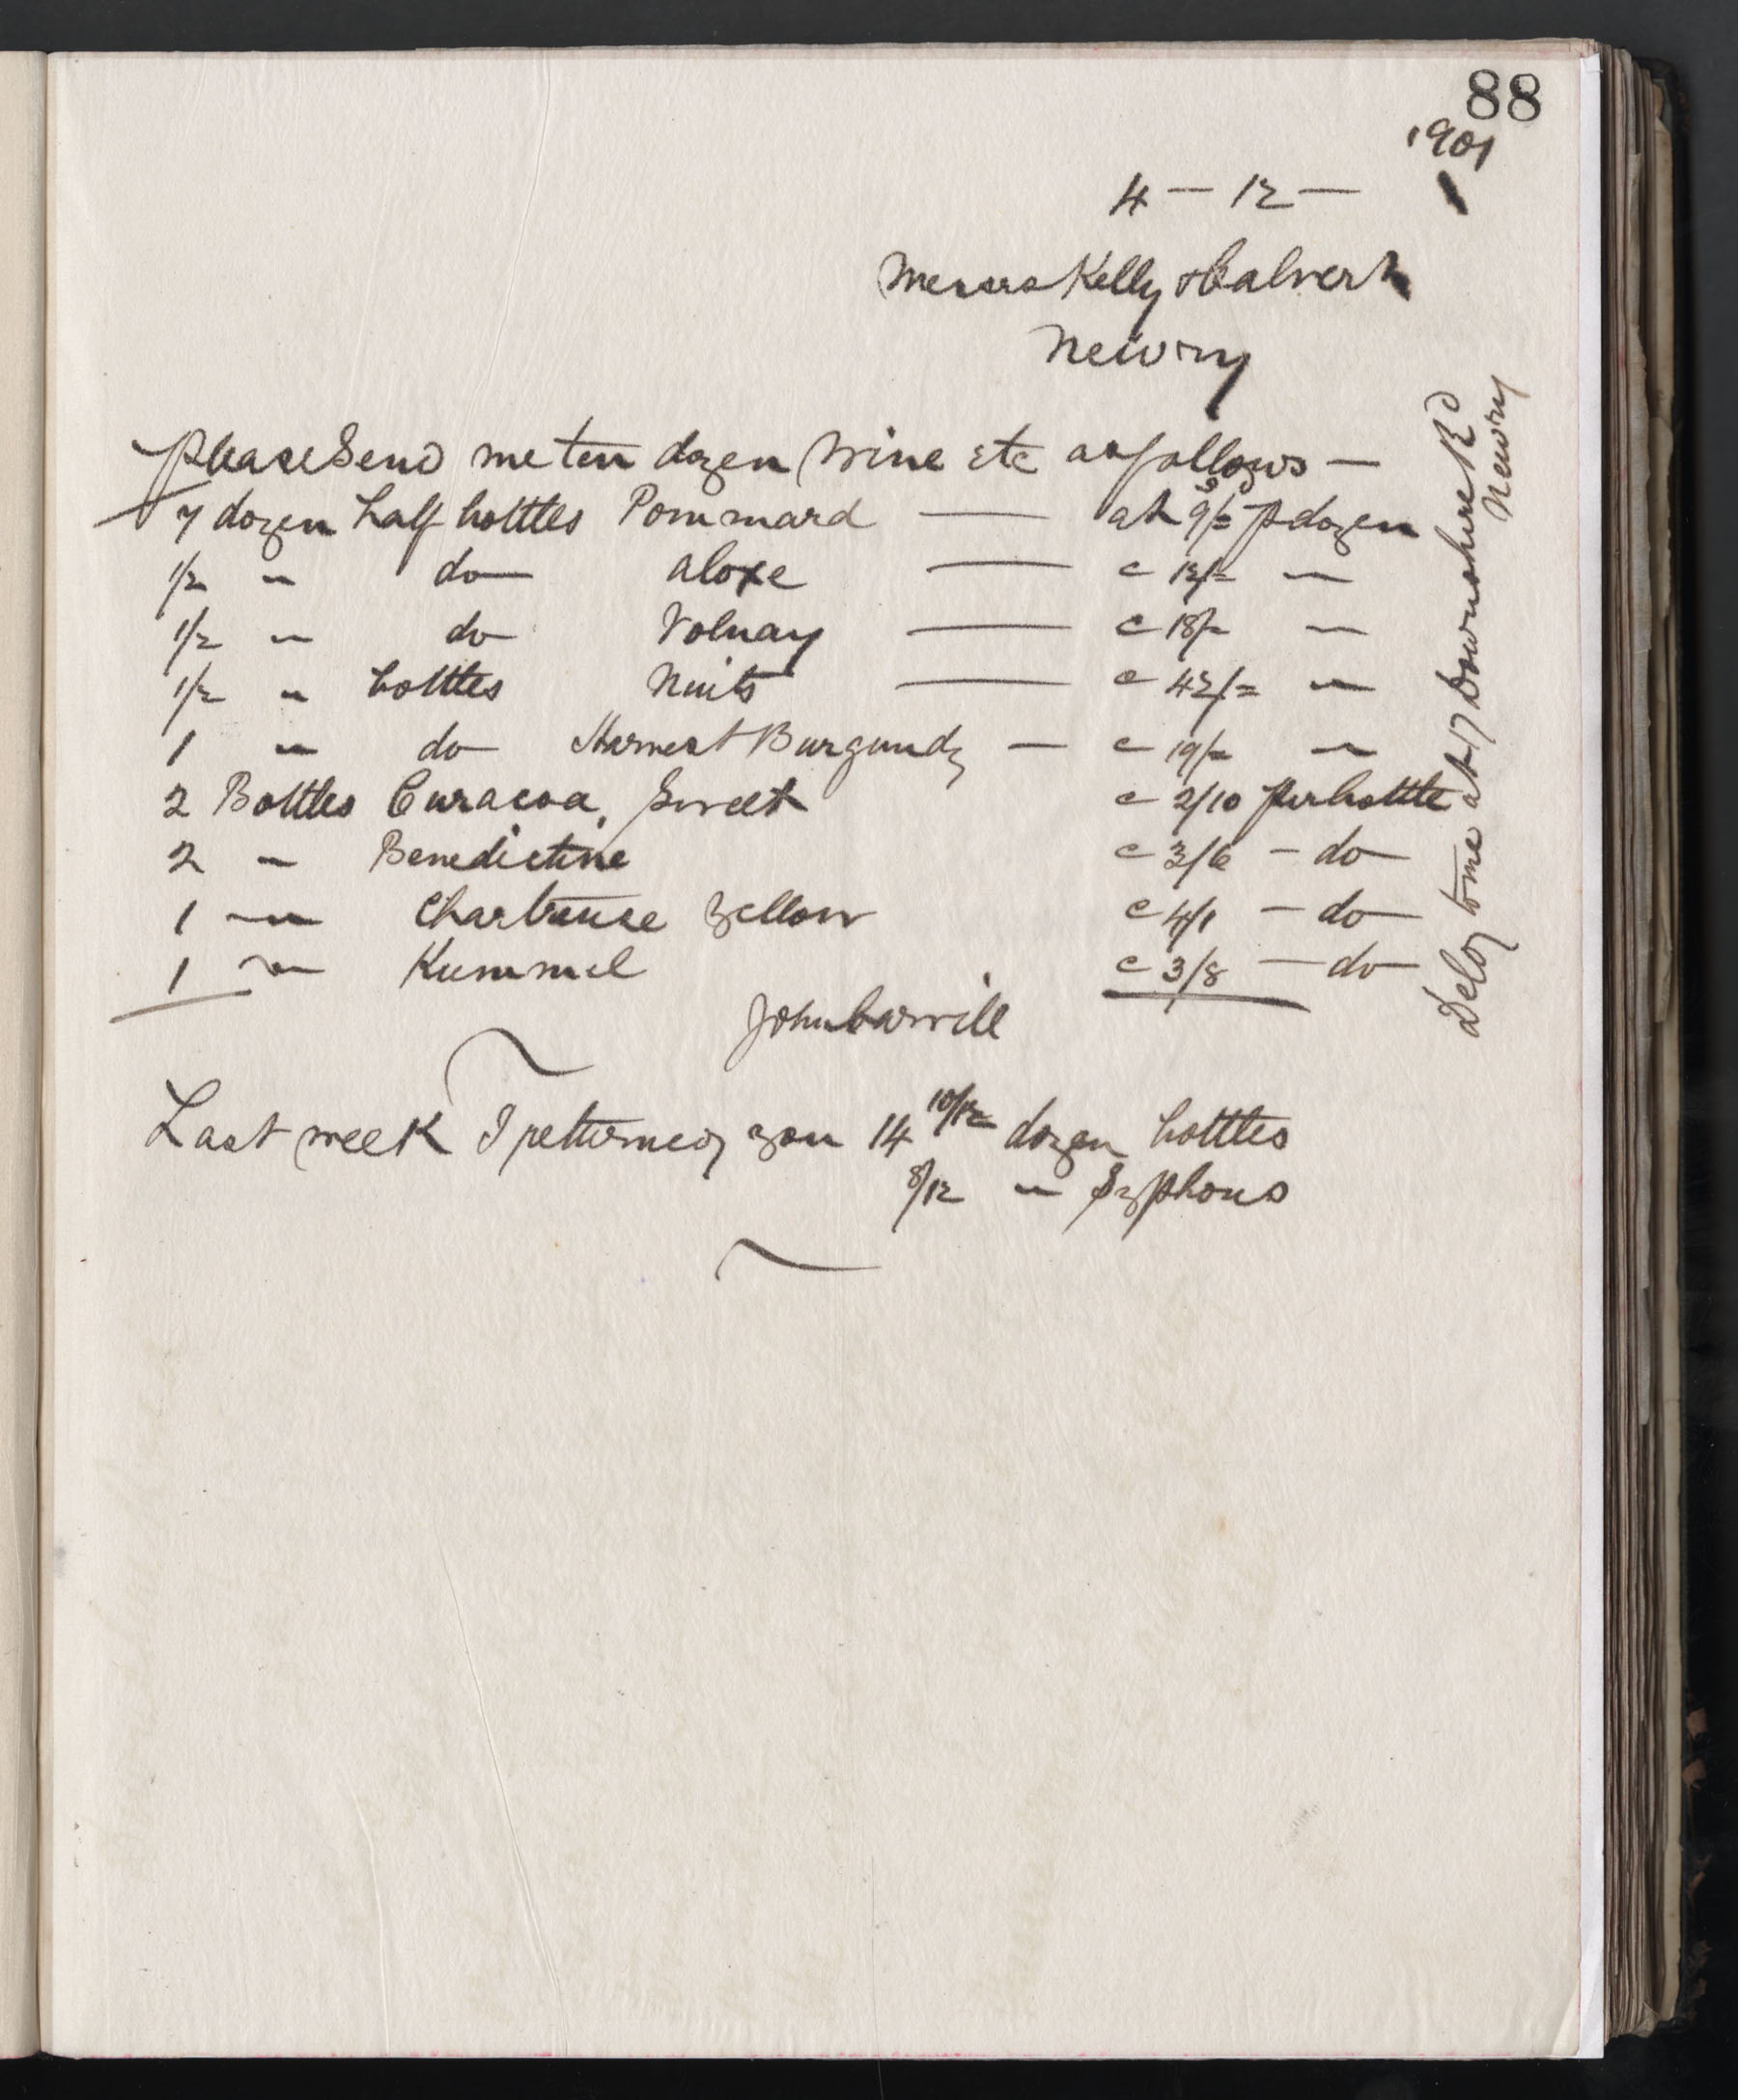 88
1901
4 — 12 — 1
Messrs Kelly & Calvert
Newry
Please Send me ten dozen Wine etc as follows —
7 dozen half bottles Pommard — at 9/6 p dozen
1/2 " do aloxe — c 12/= "
1/2 " do Volnay — c 18/= "
1/2 " bottles Nuits — c 42/= "
1 " do Harvest Burgundy — c 19/= "
2 Bottles Curacoa, Sweet c 2/10 per bottle
2 " Benedictine c 3/6 - do
1 " Chartreuse yellow c 4/1 - do
1 " Kummel c 3/8 - do
John Carvill
Last week I returned you 14 10/12 dozen bottles
8/12 " Syphons
to me at 17 Downshire Rd
Newry